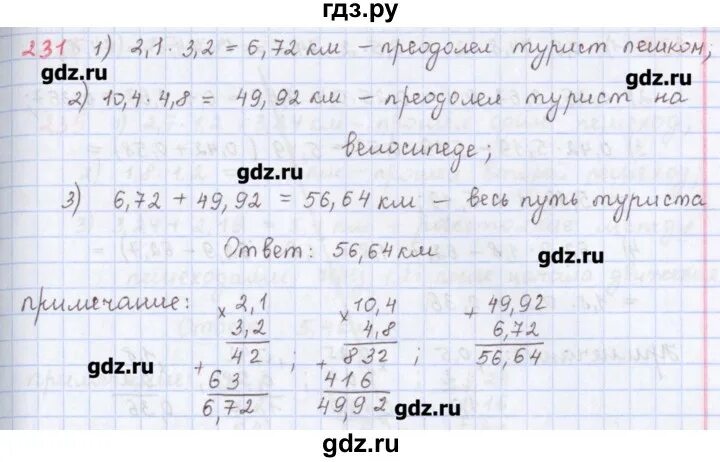 гдз.ру
231 1) 2,1 · 3,2 = 6,72 км – преодолел турист пешком;
gdz.ru gdz.ru
2) 10,4 · 4,8 = 49,92 км – преодолел турист на
gdz.ru велосипеде;
3) 6,72 + 49,92 = 56,64 км – весь путь туриста
Ответ: 56,64 км
примечание: × 2,1 × 10,4 + 49,92
3,2 4,8 6,72
+ 42 ; + 832 ; 56,64
gdz.ru 63 416
6,72 49,92 gdz.ru
gdz.ru